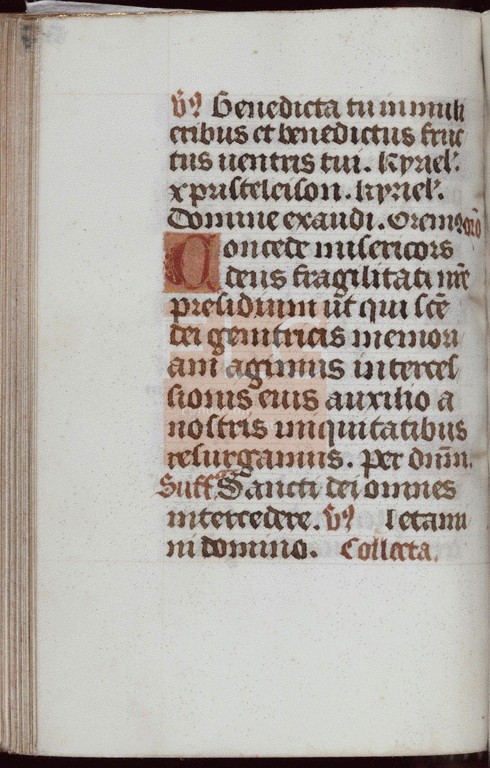 v̄ꝯ Benedicta tu in muli
eribus et benedictus fruc
tus uentris tui. kyriel'.
xpristeleison. kyriel'.
Domine exaudi. Oremꝯ orō
Concede misericors
deus fragilitati nr̄e
presidium ut qui scē
dei genitricis memori
am agimus interces
sionis eius auxilio a
nostris iniquitatibus
resurgamus. per dnm̄.
Suff. Sancti dei omnes
intercedere. v̄ꝯ letami
ni domino. Collecta.